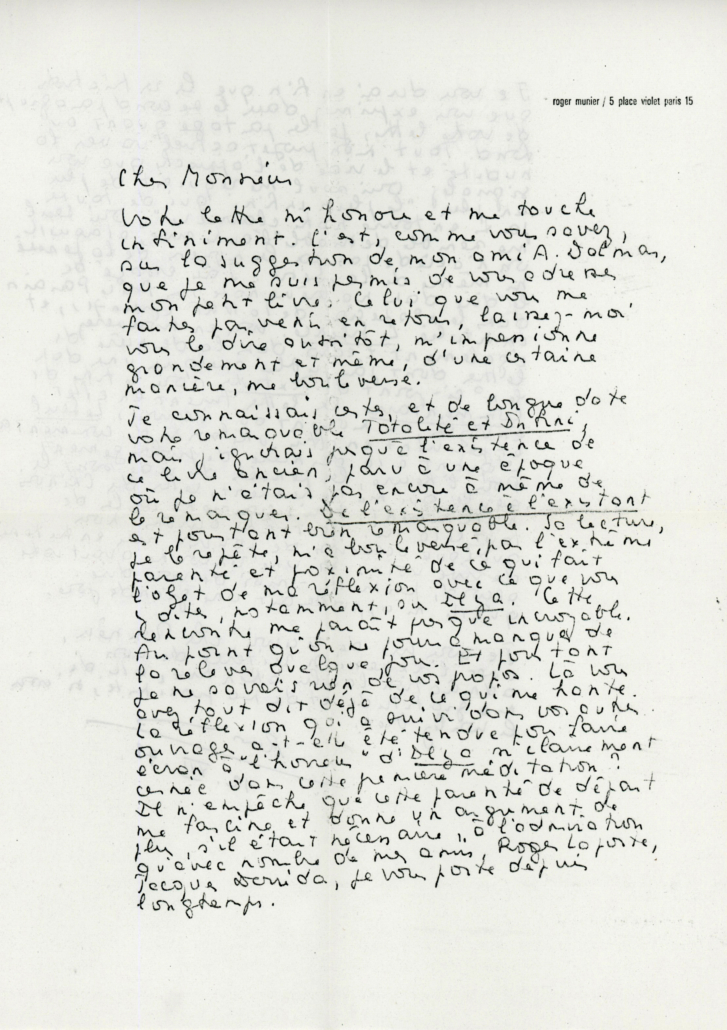 roger munier / 5 place violet paris 15
Cher Monsieur
Votre lettre m'honore et me touche
infiniment. C'est, comme vous savez,
sur la suggestion de mon ami A. Dalmas,
que je me suis permis de vous adresser
mon petit livre. Celui que vous me
faites parvenir en retour, laissez-moi
vous le dire aussitôt, m'impressionne
grandement et même, d'une certaine
manière, me bouleverse.
Je connaissais certes, et de longue date
votre remarquable Totalité et Infini,
mais ignorais jusqu'à l'existence de
ce livre ancien, paru à une époque
où je n'étais pas encore à même de
le remarquer. De l'existence à l'existant
est pourtant bien remarquable. Sa lecture,
je le répète, m'a bouleversé, par l'extrême
parenté et proximité de ce qui fait
l'objet de ma réflexion avec ce que vous
y dites, notamment, sur Il y a. Cette
rencontre me paraît presque incroyable.
Au point qu'on ne pourra manquer de
la relever quelque jour. Et pourtant
je ne savais rien de vos propos. Là vous
avez tout dit déjà de ce qui me hante.
La réflexion qui a suivi dans vos autres
ouvrages a-t-elle été tendue pour faire
écran à l'"horreur" d'Il y a si clairement
cernée dans cette première méditation ?
Il n'empêche que cette parenté de départ
me fascine et donne un argument de
plus, s'il était nécessaire, à l'admiration
qu'avec nombre de mes amis, Roger Laporte,
Jacques Derrida, je vous porte depuis
longtemps.